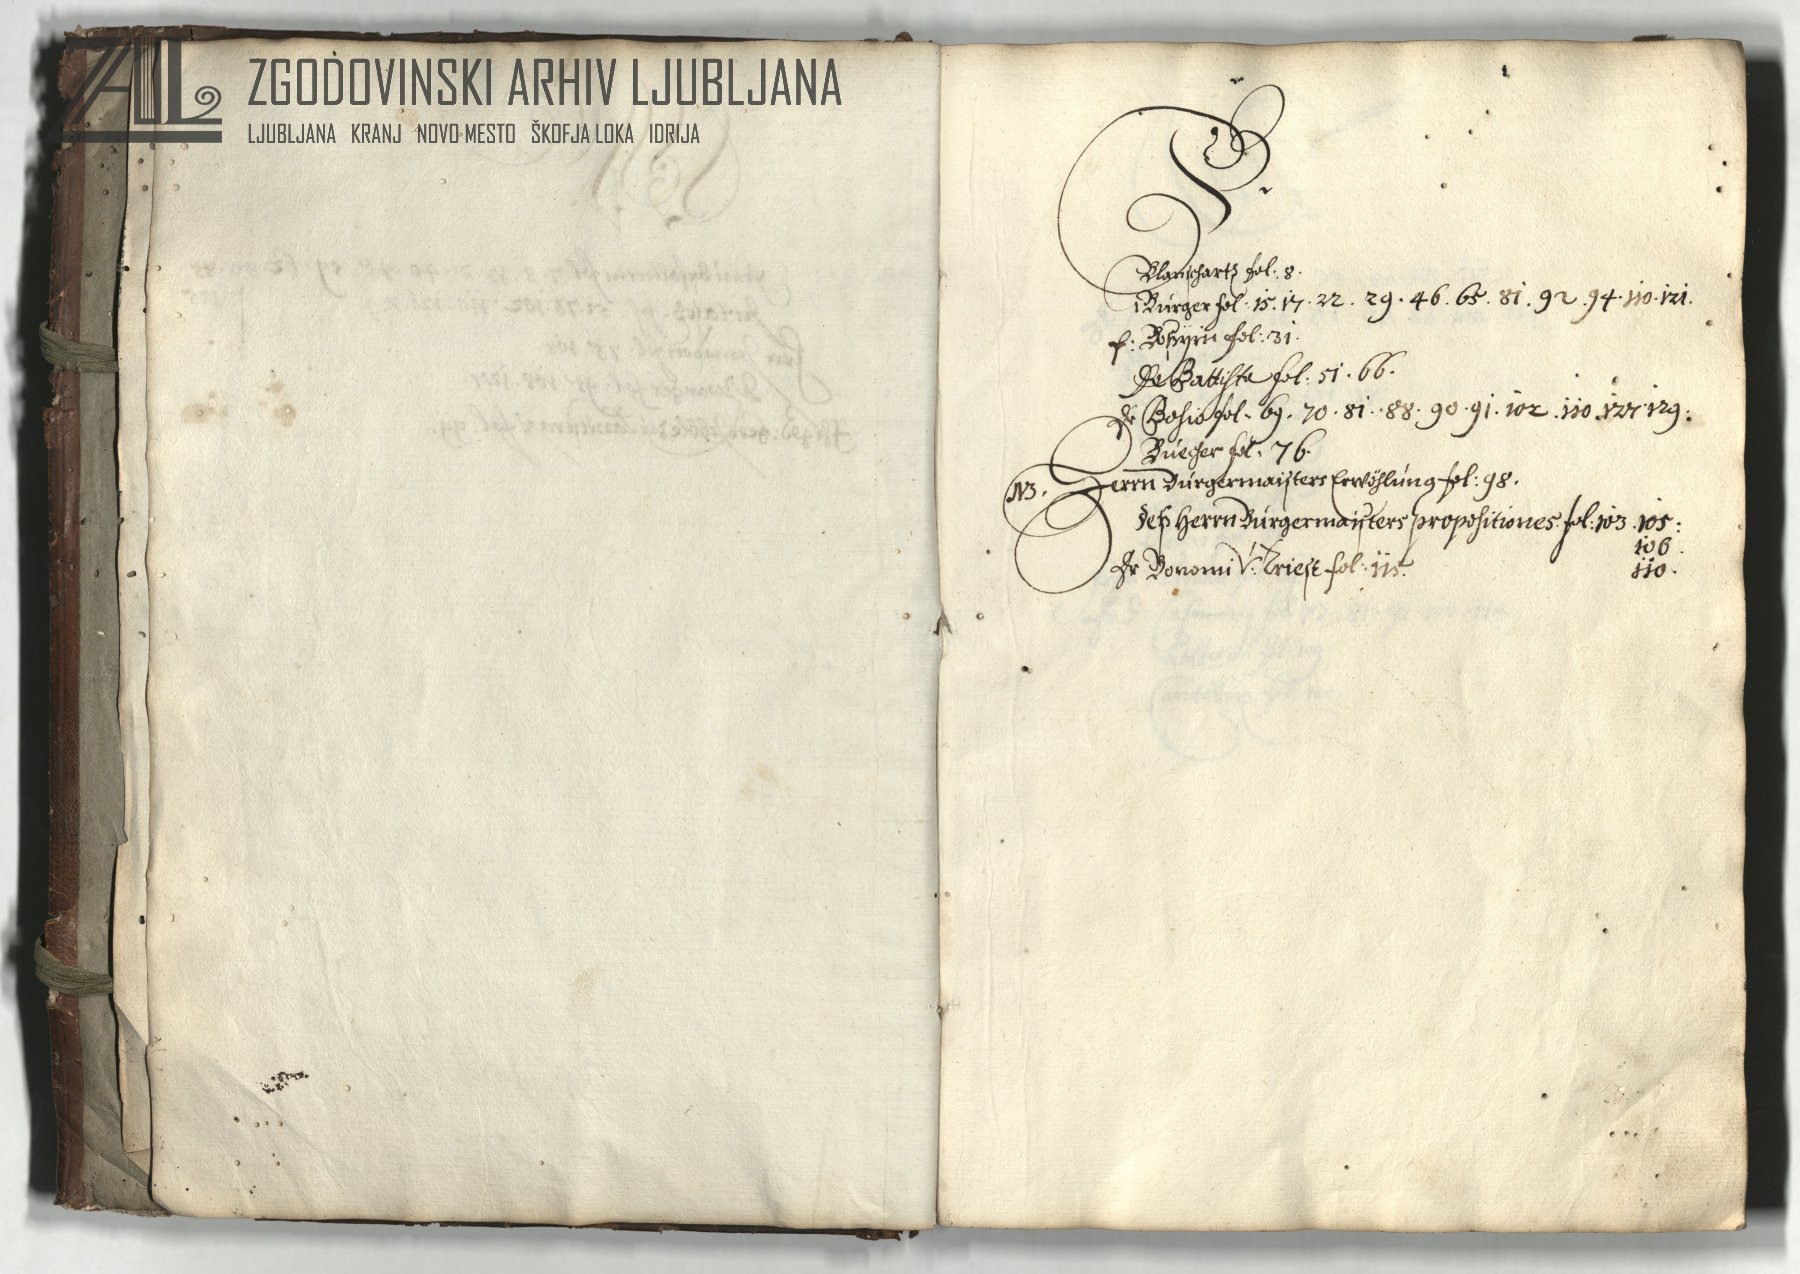 ZGODOVINSKI ARHIV LJUBLJANA
LJUBLJANA KRANJ NOVO MESTO ŠKOFJA LOKA IDRIJA
B
Blanschartz fol: 8.
Bürger fol: 15. 17. 22. 29. 46. 65. 81. 92. 94. 110. 121.
fol: 31.
De Battista fol: 51. 66.
Bosio fol: 69. 70. 81. 88. 90. 91. 102. 110. 127. 129.
Büecher fol: 76.
NB. Herrn Bürgermaisters Erwöhlung fol: 98.
deß Herrn Bürgermaisters propositiones fol: 103. 105:
106.
110.
Bonomi v: Triest fol: 115.